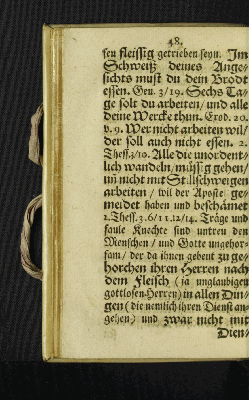 48.
sen fleissig getrieben seyn. Im
Schweiß deines Ange-
sichts must du dein Brodt
essen. Gen. 3/19. Sechs Ta-
ge solt du arbeiten/ und alle
deine Wercke thun. Exod. 20.
v. 9. Wer nicht arbeiten wil/
der soll auch nicht essen. 2.
Thess. 3/10. Alle die unordent-
lich wandeln/ müssig gehen/
uñ nicht mit Stillschweigen
arbeiten / wil der Apostel ge-
meidet haben und beschämet
2. Thess. 3. 6/11.12/14. Träge und
faule Knechte sind untreu den
Menschen / und Gotte ungehor-
sam/ der da ihnen gebeut zu ge-
horchen ihren Herren nach
dem Fleisch (ja unglaubigen
gottlosen Herren) in allen Din-
gen (die nemlich ihren Dienst an-
gehen) und zwar nicht mit
Dien-